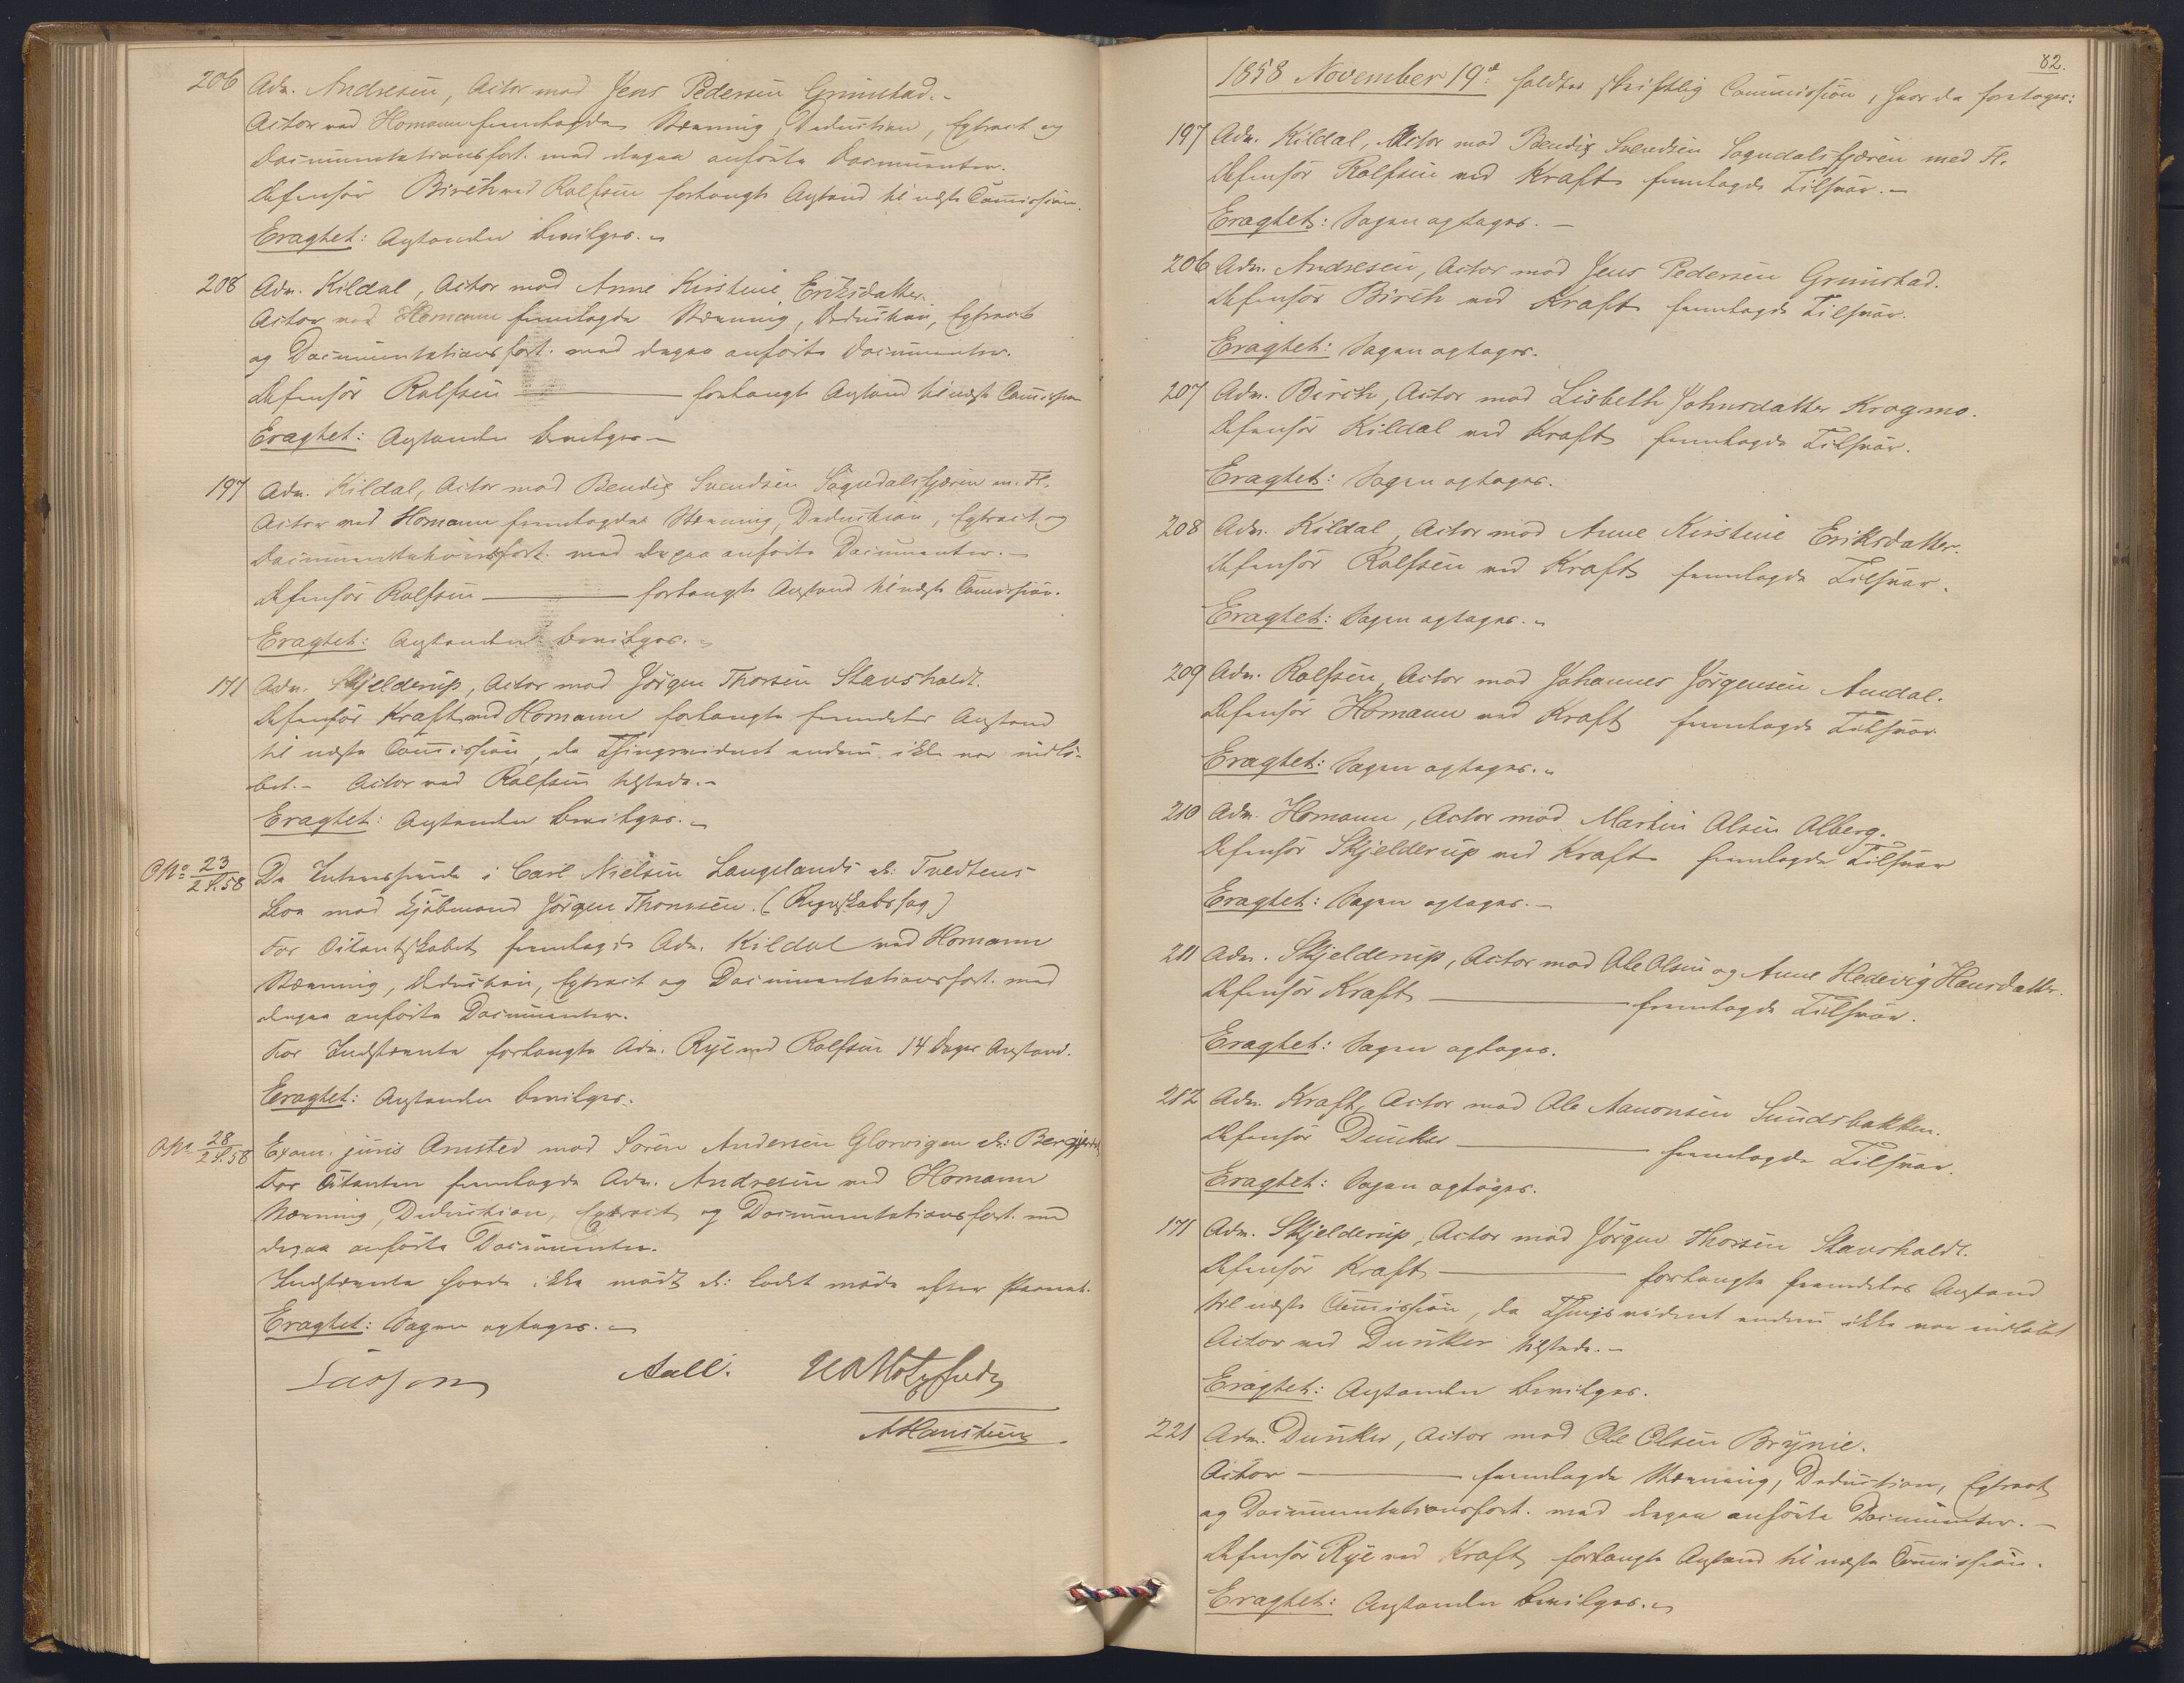 206 Adv. Andresen, Actor mod Jens Pedersen Grimstad.-
Actor ved Homann fremlagde Stævning, Deduction, Extract og
Documentationsfort. med derpaa anførte Documenter.
Defensor Birch ved Rolfsen forlangte Anstand til næste Commission.
Eragtet: Anstanden bevilges.-
208 Adv. Kildal, Actor mod Anne Kirstine Eriksdatter.
Actor ved Homann fremlagde Stævning, Deduction, Extract
og Documentationsfort. med derpaa anførte Documenter.
Defensor Rolfsen ——— forlangte Anstand til næste Commission
Eragtet: Anstanden bevilges.-
197 Adv. Kildal, Actor mod Bendix Svendsen Sogndalsfjæren m. Fl.
Actor ved Homann fremlagde Stævning, Deduction, Extract og
Documentationsfort. med derpaa anførte Documenter.-
Defensor Rolfsen ——— forlangte Anstand til næste Commission.
Eragtet: Anstanden bevilges.-
171 Adv. Skjelderup, Actor mod Jørgen Thorsen Stavsholdt.
Defensor Kraft ved Homann forlangte fremdeles Anstand
til næste Commission, da Thingsvidnet endnu ikke var indlø-
bet.- Actor ved Rolfsen tilstede.-
Eragtet: Anstanden bevilges.-
O No 23/2 S. 58 De Interesserede i Carl Nielsen Langelands el: Tvedtens
Boe mod Kjøbmand Jørgen Thommesen. (Regnskabssag)
For Citantskabet fremlagde Adv. Kildal ved Homann
Stævning, Deduction, Extract og Documentationsfort. med
derpaa anførte Documenter.
For Indstævnte forlangte Adv. Rye ved Rolfsen 14 Dages Anstand.
Eragtet: Anstanden bevilges.
O No 28/2 S. 58 Exam. juris Omsted mod Søren Andersen Glorvigen el:
For Citanten fremlagde Adv. Andresen ved Homann
Stævning, Deduction, Extract og Documentationsfort. med
derpaa anførte Documenter.
Indstævnte havde ikke mødt el: ladet møde efter Paaraab.
Eragtet: Sagen optages.-
Lasson Aall. U A Motzfeldt
A Hansteen
82.
1858 November 19de holdtes skriftlig Commission, hvor da foretoges:
197 Adv. Kildal, Actor mod Bendix Svendsen Sogndalsfjæren med Fl.
Defensor Rolfsen ved Kraft fremlagde Tilsvar.-
Eragtet: Sagen optages.-
206 Adv. Andresen, Actor mod Jens Pedersen Grimstad.
Defensor Birch ved Kraft fremlagde Tilsvar.
Eragtet: Sagen optages.
207 Adv. Birch, Actor mod Lisbeth Johnsdatter Kragmo.
Defensor Kildal ved Kraft fremlagde Tilsvar.
Eragtet: Sagen optages.
208 Adv. Kildal, Actor mod Anne Kirstine Eriksdatter.
Defensor Rolfsen ved Kraft fremlagde Tilsvar.
Eragtet: Sagen optages.-
209 Adv. Rolfsen, Actor mod Johannes Jørgensen Amdal.
Defensor Homann ved Kraft fremlagde Tilsvar
Eragtet: Sagen optages.-
210 Adv. Homann, Actor mod Martin Olsen Alberg.
Defensor Skjelderup ved Kraft fremlagde Tilsvar
Eragtet: Sagen optages.-
211 Adv. Skjelderup, Actor mod Ole Olsen og Anne Hedevig Hansdatter.
Defensor Kraft ——— fremlagde Tilsvar.
Eragtet: Sagen optages.
212 Adv. Kraft, Actor mod Ole Aanonsen Sundsbakken.
Defensor Dunker ——— fremlagde Tilsvar.
Eragtet: Sagen optages.
171 Adv. Skjelderup, Actor mod Jørgen Thorsen Stavsholdt.
Defensor Kraft ——— forlangte fremdeles Anstand
til næste Commission, da Thingsvidnet endnu ikke var indløbet
Actor ved Dunker tilstede.-
Eragtet: Anstanden bevilges.
221 Adv. Dunker, Actor mod Ole Olsen Brynie.
Actor ——— fremlagde Stævning, Deduction, Extract
og Documentationsfort. med derpaa anførte Documenter.-
Defensor Rye ved Kraft forlangte Anstand til næste Commission.
Eragtet: Anstanden bevilges.-